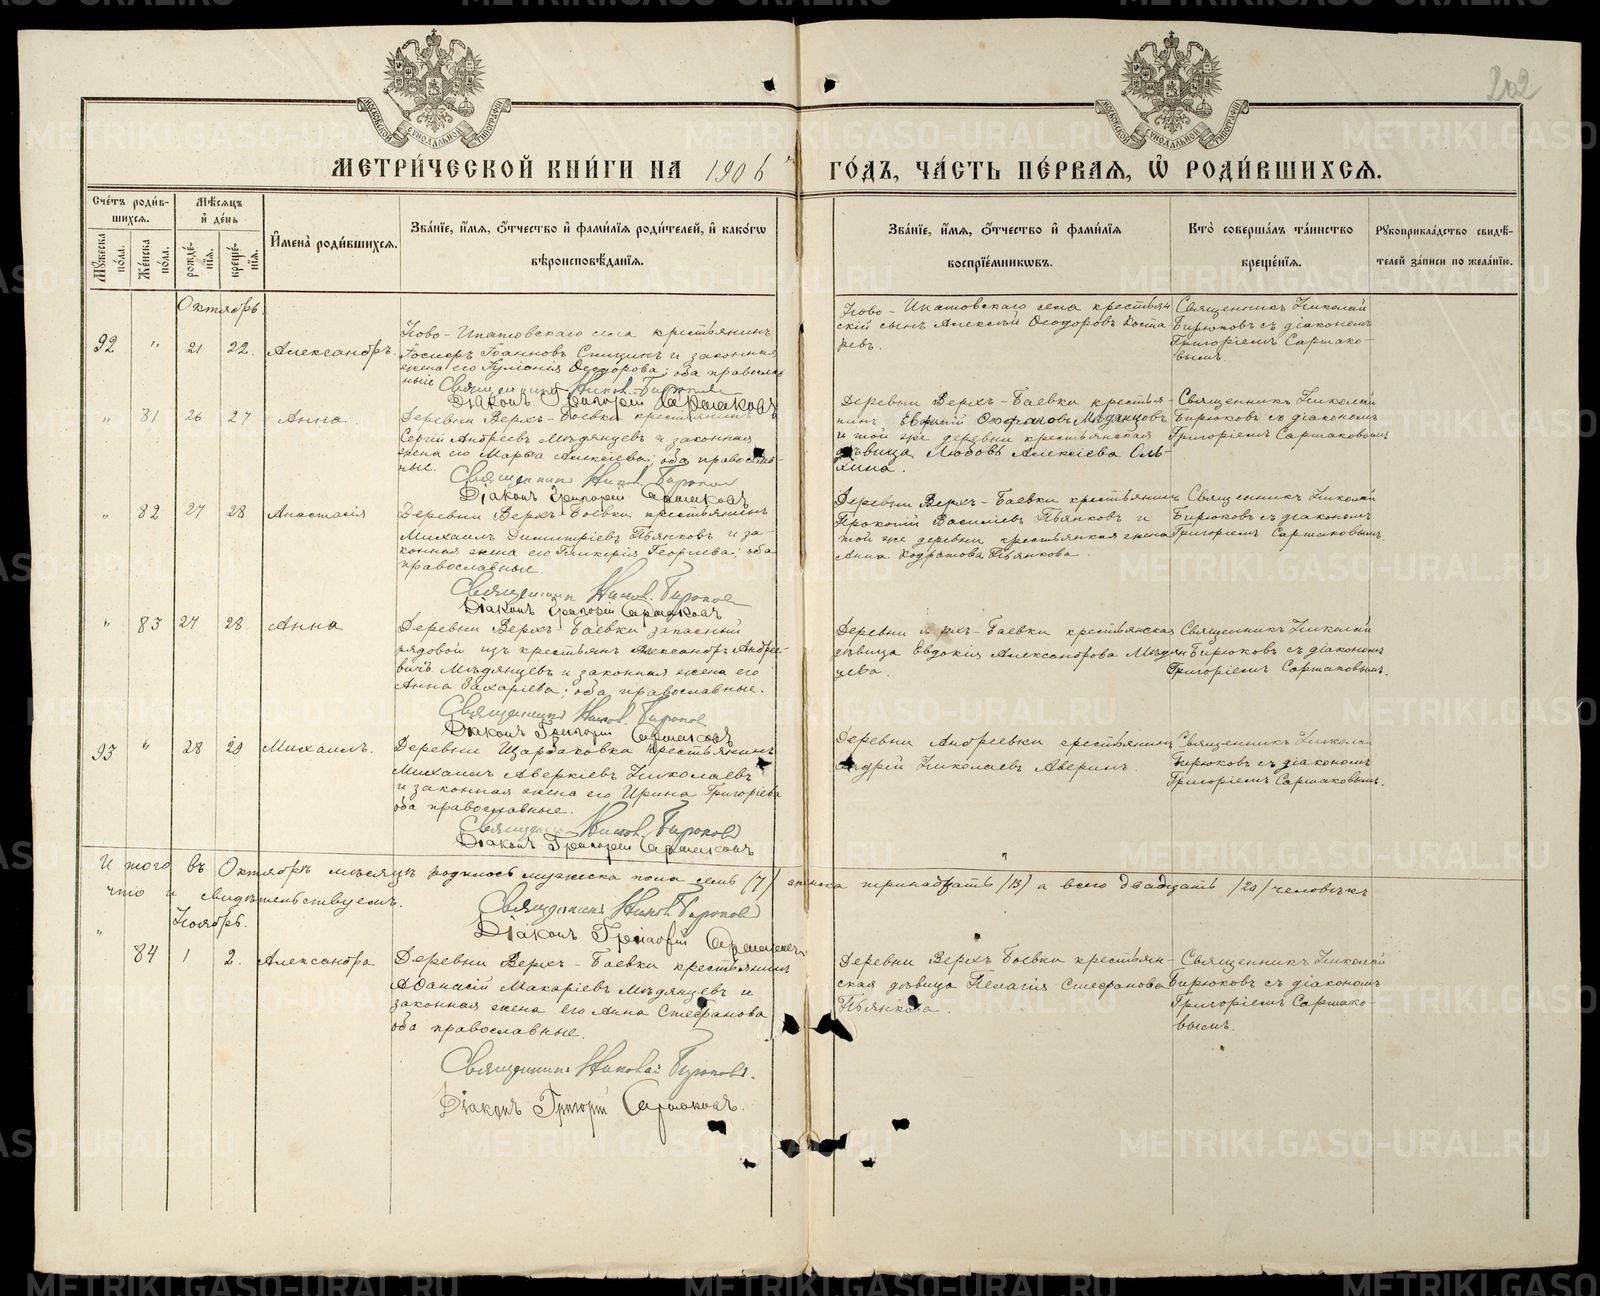 202
МОСКОВСКОЙ СѴНОДАЛЬНОЙ ТИПОГРАФІИ
МОСКОВСКОЙ СѴНОДАЛЬНОЙ ТИПОГРАФІИ
МЕТРИ́ЧЕСКОЙ КНИ́ГИ НА 1906 ГО́ДЪ, ЧА́СТЬ ПЕ́РВАѦ, Ѡ҆ РОДИ́ВШИХСѦ.
Сче́тъ роди́в-
шихсѧ.
Мꙋ́жеска по́ла.
Же́нска по́ла.
Мѣ́сѧцъ и҆ де́нь
рожде́-нїѧ.
креще́-нїѧ.
И҆мена̀ роди́вшихсѧ.
Зва́нїе, и҆́мѧ, ѻ҆́тчество и҆ фами́лїѧ роди́телей, и҆ како́гѡ
вѣроисповѣ́данїѧ.
Зва́нїе, и҆́мѧ, ѻ҆́тчество и҆ фами́лїѧ
воспрїе́мникѡвъ.
Кто̀ соверша́лъ та́инство
креще́нїѧ.
Рꙋкоприкла́дство свидѣ́-
телей за́писи по жела́нїю.
Октябрь
92 " 21 22. Александръ.
Ново-Ипатовскаго села крестьянинъ
Іоанновъ Спицинъ и законная
жена его Іуліанія Ѳеодорова; оба православ-
ные
Священникъ Никол. Бирюковъ
Діаконъ Григорій Сармаковъ
Ново-Ипатовскаго села крестьян
скій сынъ Алексѣй Ѳеодоровъ Коста
ревъ.
Священникъ Николай
Бирюковъ съ діакономъ
Григоріемъ Сармако-
вымъ.
" 81 26 27 Анна.
Деревни Верхъ-Боевки крестьянинъ
Сергій Андреевъ Мѣдянцевъ и законная
жена его Марѳа Алексіева; оба православ-
ные.
Священникъ Никол. Бирюков
Діаконъ Григорій Сармаковъ
Деревни Верхъ-Боевки крестья-
нинъ Евфимій Мѣдянцовъ
и той же деревни крестьянская
дѣвица Любовь Алексіева Оль-
хина.
Священникъ Николай
Бирюковъ съ діакономъ
Григоріемъ Сармаковымъ
" 82 27 28 Анастасія
Деревни Верхъ-Боевки крестьянинъ
Михаилъ Димитріевъ Пьянковъ и за-
конная жена его Гликерія Георгіева; оба
православные.
Священникъ Никол. Бирюков
Діаконъ Григорій Сармаковъ
Деревни Верхъ-Боевки крестьянинъ
Прокопій Василіевъ Пьянковъ и
той же деревни крестьянская жена
Анна Кодратова Пьянкова.
Священникъ Николай
Бирюковъ съ діакономъ
Григоріемъ Сармаковымъ.
" 83 27 28. Анна
Деревни Верхъ-Боевки запасный
рядовой изъ крестьянъ Александръ Андрее-
вичъ Мѣдянцевъ и законная жена его
Анна Захаріева; оба православные.
Священникъ Никол. Бирюков
Діаконъ Григорій Сармаковъ
Деревни Верхъ-Боевки крестьянская
дѣвица Евдокія Александрова Мѣдян
цева.
Священникъ Николай
Бирюковъ съ діакономъ
Григоріемъ Сармаковымъ.
93 " 28 29 Михаилъ.
Деревни Щарбаковки крестьянинъ
Михаилъ Аверкіевъ Николаевъ
и законная жена его Ирина Григоріева
оба православные.
Священникъ Никол. Бирюковъ
Діаконъ Григорій Сармаковъ
Деревни Андреевки крестьянинъ
Андрей Николаевъ Аверинъ.
Священникъ Николай
Бирюковъ съ діакономъ
Григоріемъ Сармаковымъ.
Итого въ Октябрѣ мѣсяцѣ родилось мужеска пола семь /7/ женска тринадцать /13/ а всего двадцать /20/ человѣкъ
что и свидѣтельствуемъ.
Священникъ Никол. Бирюковъ
Діаконъ Григорій Сармаковъ
Ноябрь.
" 84 1 2. Александра
Деревни Верхъ-Боевки крестьянинъ
Аѳанасій Макаріевъ Мѣдянцевъ и
законная жена его Анна Стефанова
оба православные.
Священникъ Николай Бирюковъ.
Діаконъ Григорій Сармаковъ.
Деревни Верхъ Боевки крестьян-
ская дѣвица Пелагія Стефанова
Пьянкова.
Священникъ Николай
Бирюковъ съ діакономъ
Григоріемъ Сармако-
вымъ.
METRIKI.GASO-URAL.RU